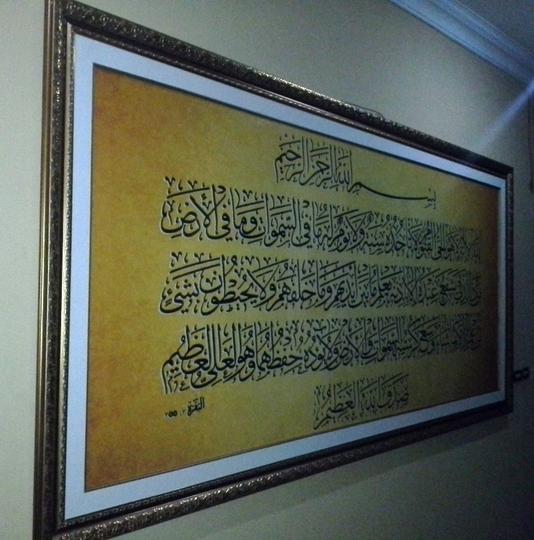 بسم الله الرحمن الرحيم
الله لا إله إلا هو الحي القيوم لا تأخذه سنة ولا نوم له ما في السموات وما في الأرض
من ذا الذي يشفع عنده إلا بإذنه يعلم ما بين أيديهم وما خلفهم ولا يحيطون بشيء
من علمه إلا بما شاء وسع كرسيه السموات والأرض ولا يؤده حفظهما وهو العلي العظيم
صدق الله العظيم
البقرة ٢٥٥